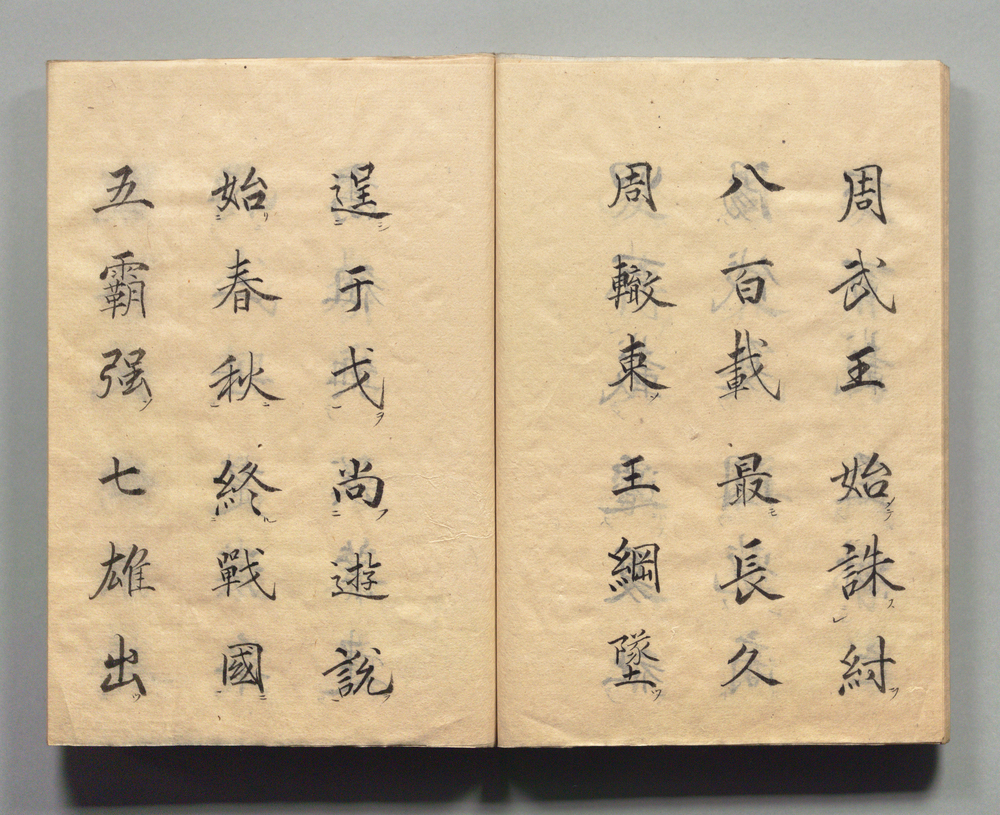 周武王始誅紂
八百載最長久
周轍東王綱墜
逞干戈尚遊說
始春秋終戰國
五霸强七雄出